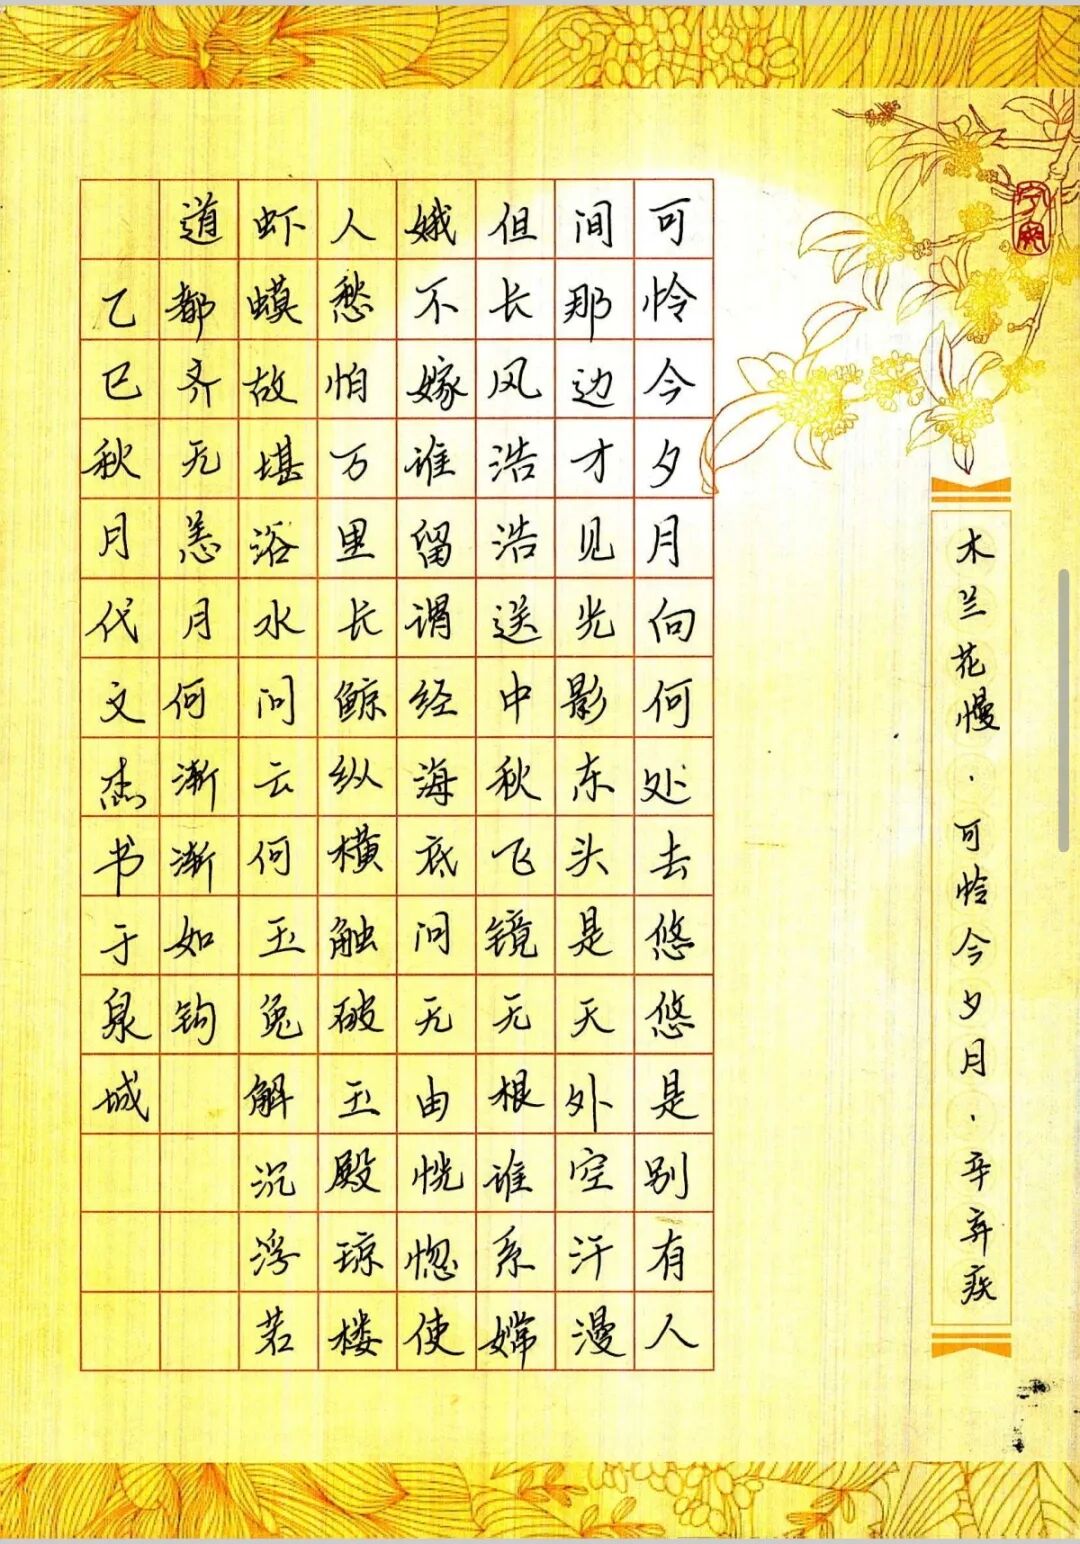 木兰花慢·可怜今夕月·辛弃疾
可怜今夕月向何处去悠悠是别有人
间那边才见光影东头是天外空汗漫
但长风浩浩送中秋飞镜无根谁系嫦
娥不嫁谁留谓经海底问无由恍惚使
人愁怕万里长鲸纵横触破玉殿琼楼
虾蟆故堪浴水问云何玉兔解沉浮若
道都齐无恙月何渐渐如钩
乙巳秋月代文杰书于泉城